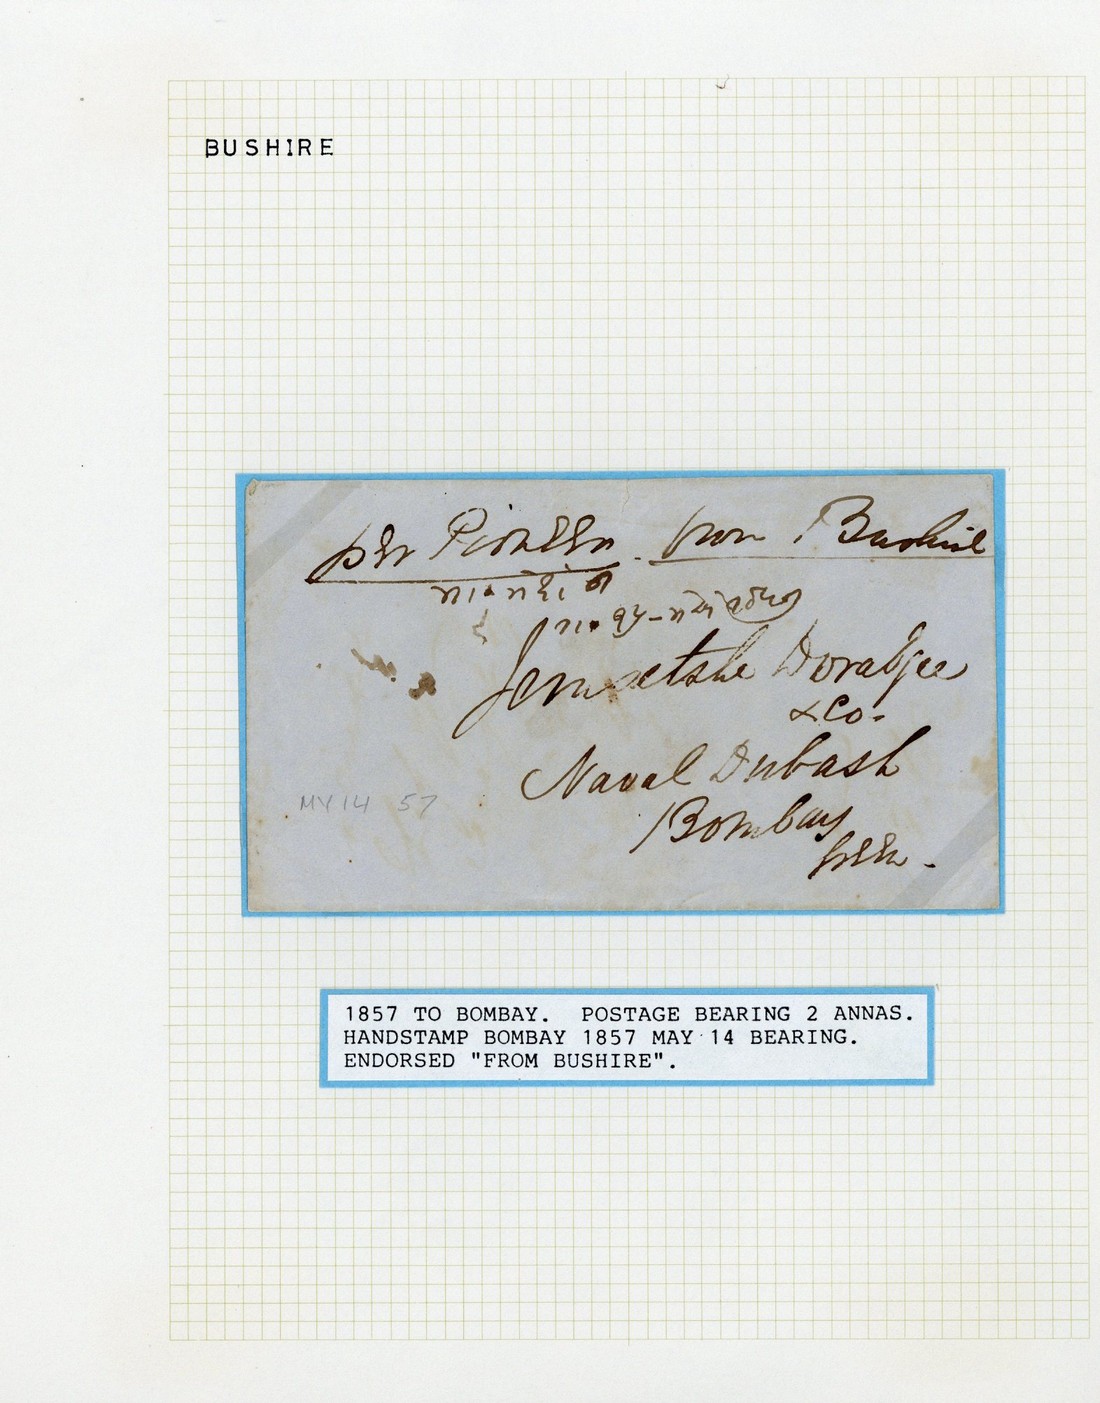 BUSHIRE
per Pioneer. from Bushire
Jemsetshe Dorabjee
& Co.
Naval Dubash
Bombay
MY 14 57
1857 TO BOMBAY. POSTAGE BEARING 2 ANNAS.
HANDSTAMP BOMBAY 1857 MAY 14 BEARING.
ENDORSED "FROM BUSHIRE".